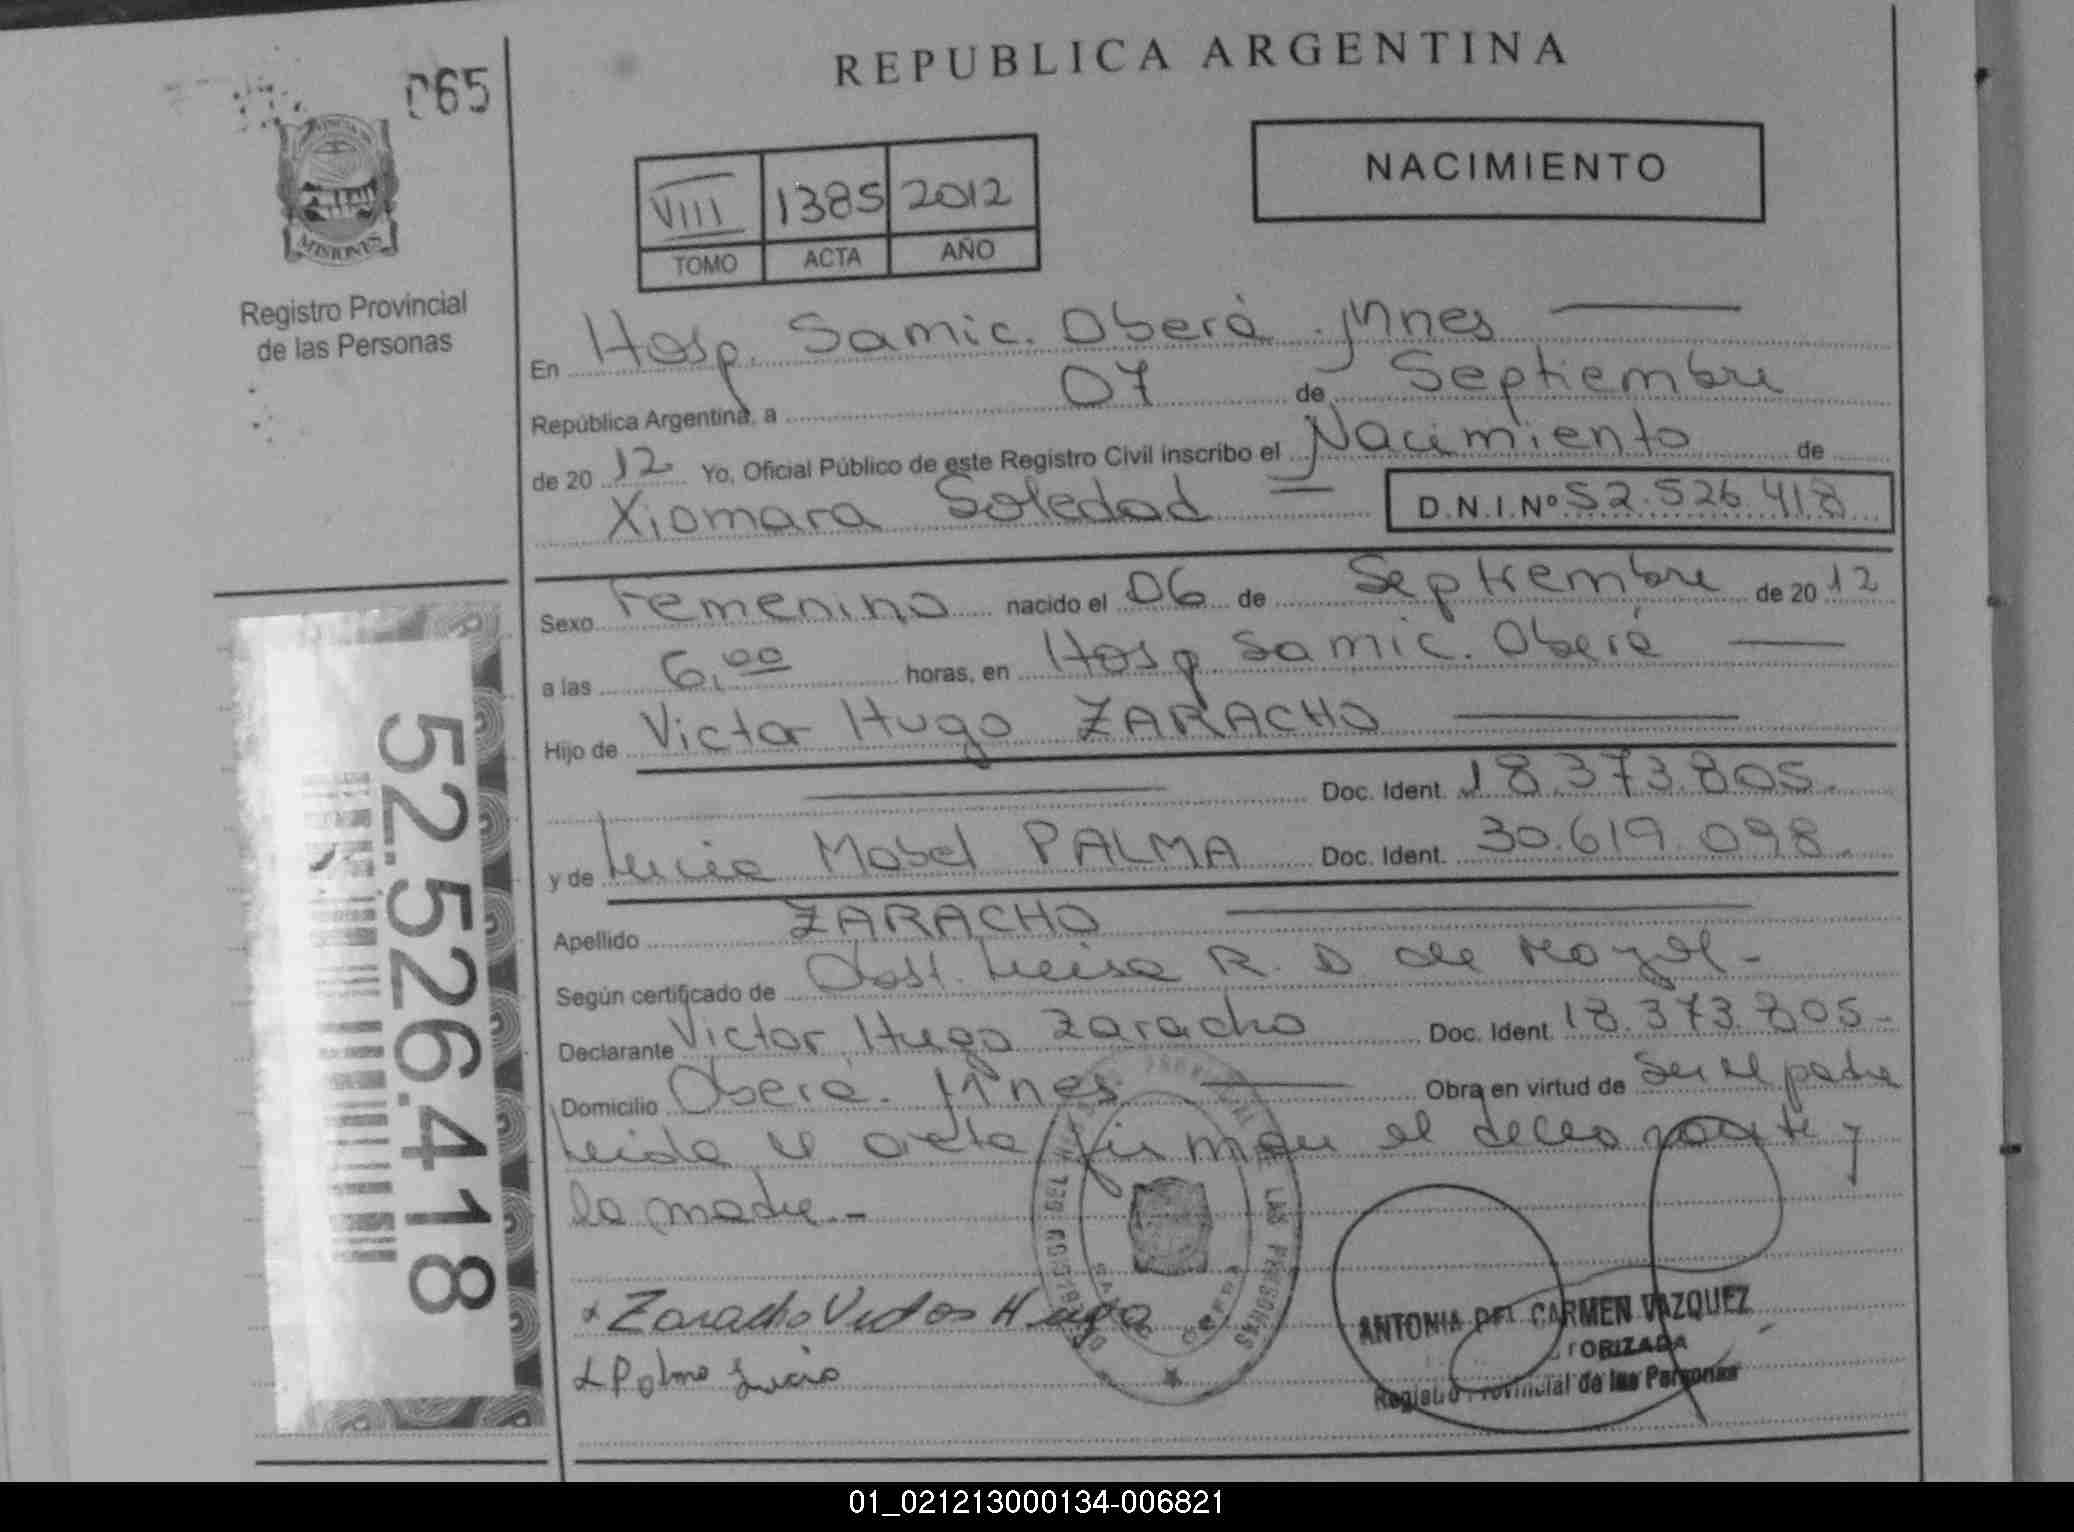 REPUBLICA ARGENTINA
065
MISIONES
Registro Provincial
de las Personas
VIII 1385 2012
TOMO ACTA AÑO
NACIMIENTO
En Hosp. Samic. Oberá. Mnes
República Argentina, a 07 de Septiembre
de 20 12 Yo, Oficial Público de este Registro Civil inscribo el Nacimiento de
Xiomara Soledad D.N.I.Nº 52.526.418
Sexo Femenino nacido el 06 de Septiembre de 20 12
a las 6,00 horas, en Hosp Samic. Oberá
Hijo de Victor Hugo ZARACHO
Doc. Ident. 18.373.805.
y de Lucia Mabel PALMA Doc. Ident. 30.619.098.
Apellido ZARACHO
Según certificado de Obst. Luisa R. D de
Declarante Victor Hugo Zaracho Doc. Ident. 18.373.805-
Domicilio Oberá. Mnes Obra en virtud de Ser el padre
Leida el acta firman el declarante y
la madre.-
x Zaracho Victor Hugo
x Palma Lucia
LAS PERSONAS
ANTONIA DEL CARMEN VAZQUEZ
TORIZADA
Registro Provincial de las Personas
52.526.418
01_021213000134-006821